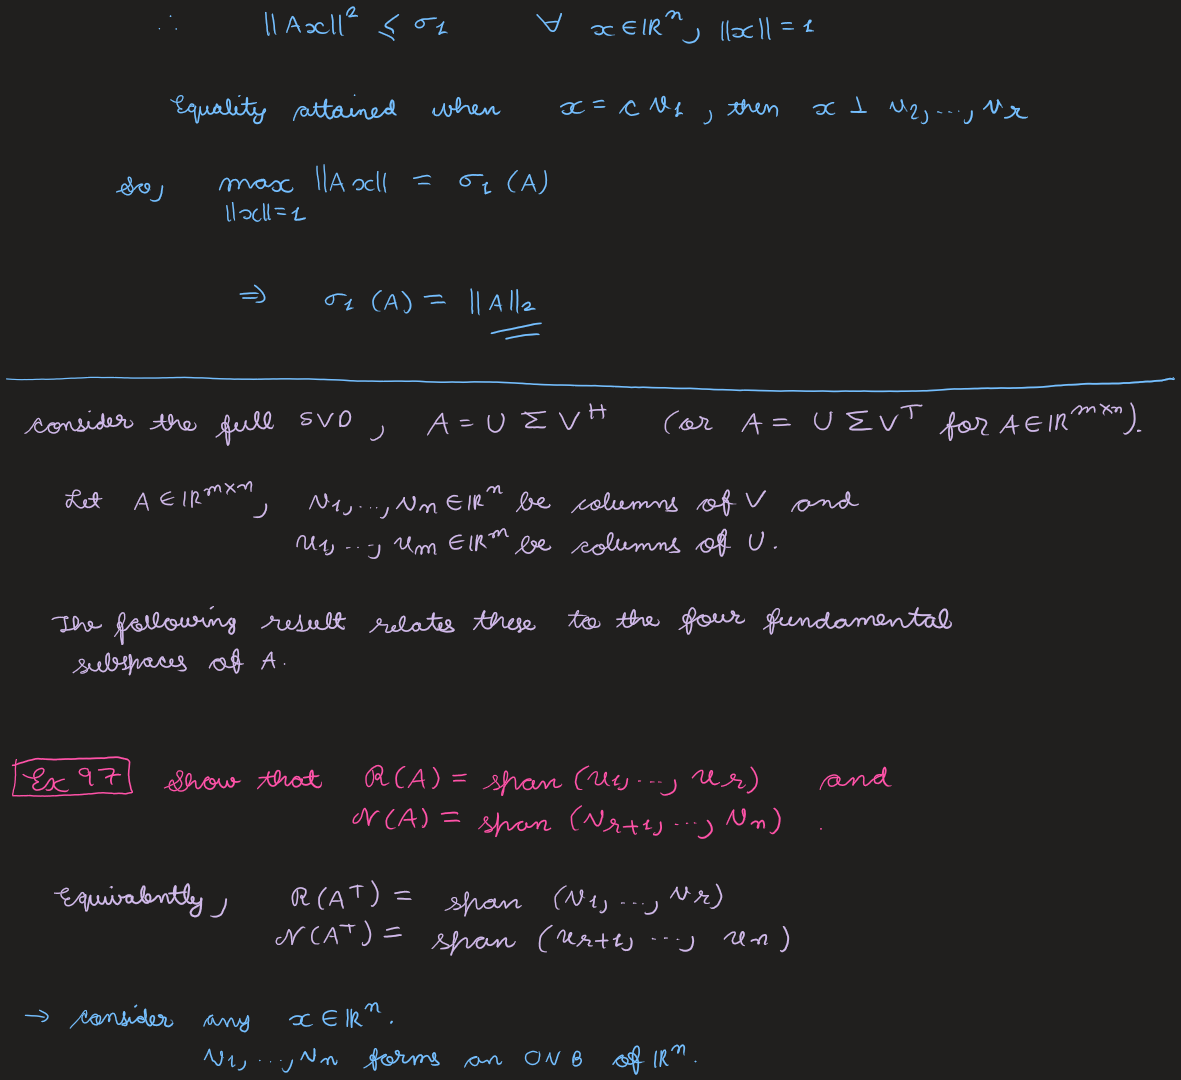 ∴ ||Ax||² ≤ σ₁ ∀ x ∈ ℝⁿ, ||x|| = 1
Equality attained when x = c v₁, then x ⊥ v₂, ..., vᵣ
So, max ||Ax|| = σ₁(A)
||x||=1
⇒ σ₁(A) = ||A||₂
Consider the full SVD, A = U Σ Vᴴ (or A = U Σ Vᵀ for A ∈ ℝᵐˣⁿ).
Let A ∈ ℝᵐˣⁿ, v₁, ..., vₙ ∈ ℝⁿ be columns of V and
u₁, ..., uₘ ∈ ℝᵐ be columns of U.
The following result relates these to the four fundamental
subspaces of A.
Ex 97 Show that R(A) = span (u₁, ..., uᵣ) and
N(A) = span (vᵣ₊₁, ..., vₙ).
Equivalently, R(Aᵀ) = span (v₁, ..., vᵣ)
N(Aᵀ) = span (uᵣ₊₁, ..., uₙ)
→ Consider any x ∈ ℝⁿ.
v₁, ..., vₙ forms an ONB of ℝⁿ.